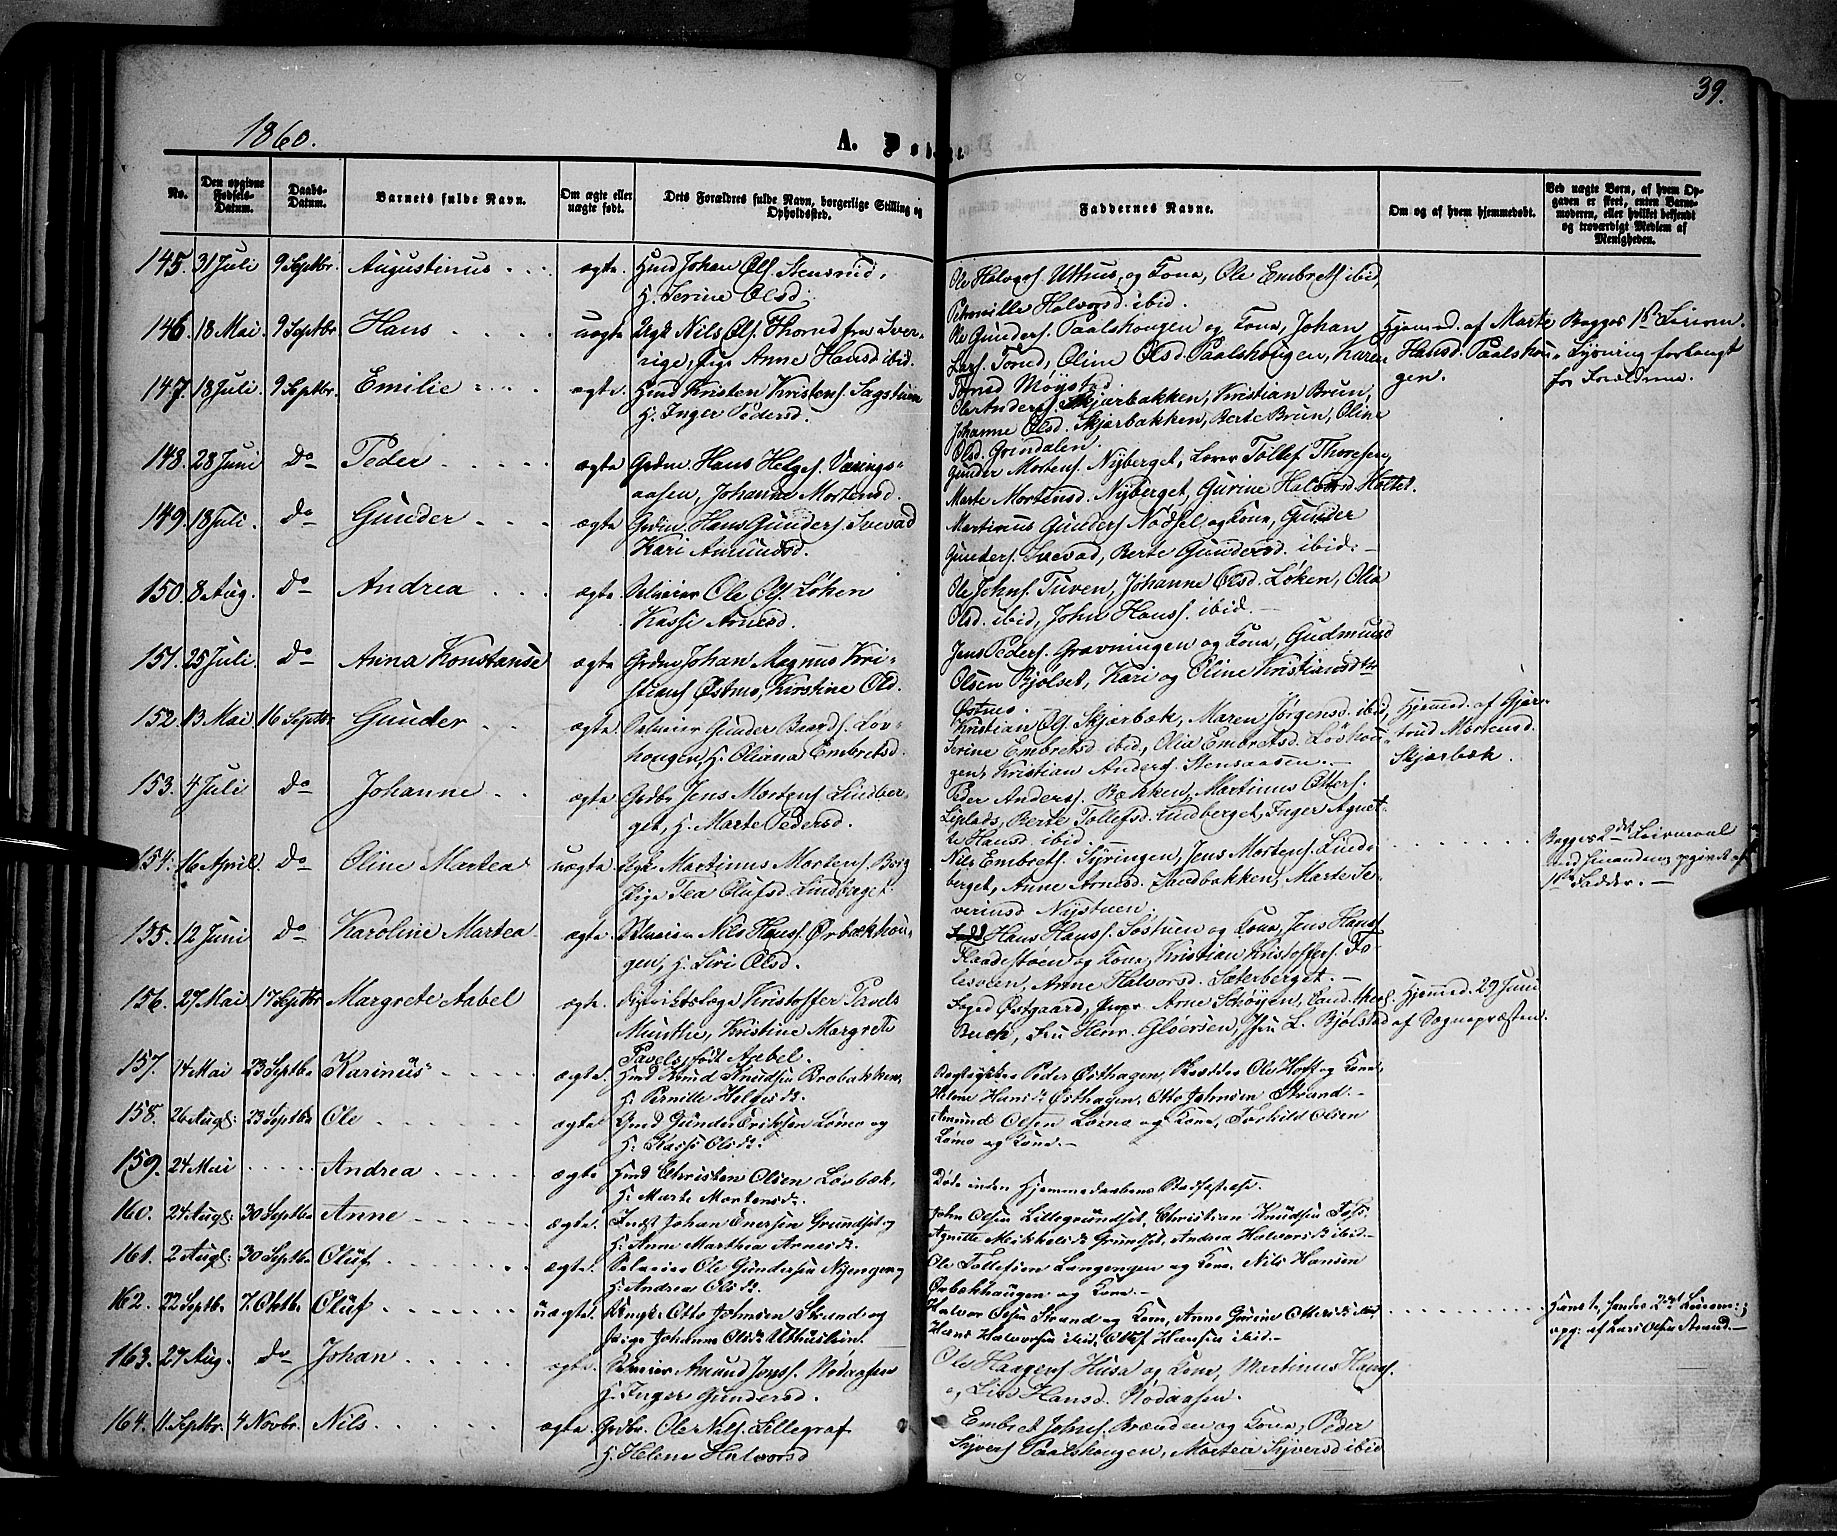 39.
1860.
A. Døbte.
No.
Den opgivne Fødsels-Datum.
Daabs-Datum.
Barnets fulde Navn.
Om ægte eller uægte født.
Dets Forældres fulde Navn, borgerlige Stilling og Opholdssted.
Faddernes Navne.
Om og af hvem hjemmedøbt.
Ved uægte Børn, af hvem Opgaven er skeet, enten Barnemoderen, eller hvilket bekjendt og troværdigt Medlem af Menigheden.
145. 31 Juli 9 Septbr. Augustinus ægte. Hmd Johan Ols. Stensrud,
H. Serine Olsd.
Ole Halvors. Uthus og Kona, Ole Embrets. ibid,
Petronille Halvorsd. ibid.
146. 18 Mai 9 Septbr. Hans uægte Ugk Nils Ols. Thorud fra Sver-
rige, Pige Anne Hansd ibid.
Ole Gunders. Paalshougen og Kona, Johan
Lars. Torud, Oline Olsd. Paalshougen, Karen
Møystad.
Hjemmed. af Marte
Hansd. Paalshou-
gen.
Begges 1ste Leierm.
Lysning forlangt
for Forældrene.
147. 18 Juli 9 Septbr. Emilie ægte. Hmd Kristen Kristens. Sagstuen
H. Inger Pedersd.
Ole Anders. Skjærbakken, Kristian Brun,
Johanne Olsd. Skjærbakken, Berte Brun, Oline
Olsd. Grindalen.
148. 28 Juni do Peder ægte Grdm. Hans Helges. Værings-
aasen, Johanne Mortensd.
Gunder Mortens. Nyberget, Tollef Thoresen,
Marte Mortensd. Nyberget, Gurine Halvorsd
149. 18 Juli. do Gunder ægte Grdm. Hans Gunders. Svevad
Kari Amundsd.
Martinus Gunders Nødsel og Kona, Gunder
Gunders. Svevad, Berte Gundersd. ibid.
150. 8 Aug. do Andrea ægte Selveier Ole Ols. Løken
Kassi Arnesd.
Ole Johns. Tuven, Johanne Olsd. Løken, Olia
Olsd. ibid, John Hanss. ibid.
151. 25 Juli. do Anna Konstanse ægte Grdm Johan Magnus Kri-
stians Østmo, Kirstine Old.
Jens Peders. Gravningen og Kona, Gudmund
Olsen Bjølset, Kari og Oline Kristiansdtr
Østmo.
152. 13 Mai 16 Septbr Gunder ægte Selveier Gunder Baards. Løv-
hougen, H. Oliana Embretsd.
Kristian Ols. Skjærbæk, Maren Jørgensd. ibid,
Serine Embretsd ibid, Olia Embretsd. Løvhou-
gen, Kristian Anders. Stensaasen.
Hjemmed. af Gjær-
trud Mortensd.
Skjærbæk.
153. 4 Juli do Johanne ægte Grdbr Jens Mortens. Lindber-
get, H. Marte Pedersd.
Peder Anders. Bækken, Martinus Otters.
Berte Tollefsd. Lindberget, Inger Agnet-
te Hansd. ibid.
154. 16 April. do Oline Martea uægte Ugk Martinus Mortens. Berg
Pige Tea Olufsd. Lindberget
Nils Embrets. Syringen, Jens Mortens. Lind-
berget, Anne Arnesd. Sandbakken, Marte Se-
verinsd Nystuen.
Begges 2det Leiermaal
opgivet af
1ste Fadder.
155. 12 Juni do Karoline Martea ægte. Selveier Nils Hans. Ørbækhou-
gen, H. Siri Olsd.
Hans Hans. Søstuen og Kona, Jens Hans.
Flaadestøen og Kona, Kristian Kristoffers. Fo-
Anne Halvorsd. Sæterberget.
156. 27 Mai 17 Septbr Margrete Aabel ægte. Distriktslæge Kristoffer Pavels
Munthe, Kristine Margrete
Pavels, født Aabel.
Foged Østgaard, Propr. Arne Schøyen,
Buch, Fru Henr. Gløersen, L. Bjølstad
Hjemmed. 29 Juni
af Sognepræsten.
157. 14 Mai 23 Septbr Karinus ægte. Hmd Knud Knudsen Brobakken,
H. Pernille Helgesdr.
Peder Østhagen, Ole Hoff og Kone,
Helene Hansdr Østhagen, Otto Johnsen Strand.
158. 26 Augs: 23 Septbr Ole ægte Gmd Gunder Eriksen Lømo og
H. Kassi Olsdr.
Amund Olsen Lømo og Kone, Torkild Olsen
Lømo og Kone.
159. 24 Mai Andrea ægte Hmd Christen Olsen Løvbæk,
H. Marte Mortensdr.
Døde inden Hjemmedaabens Stadfæstelse.
160. 24 Augs: 30 Septbr Anne ægte. Indst Johan Enersen Grundset og
H. Anne Marthea Arnesdr.
John Olsen Lillegrundset, Christian Knudsen
Agnette Mikkelsdr Grundset, Andrea Halvorsdr ibid.
161. 2 Augs: 30 Septbr Oluf ægte. Selveier Ole Gundersen Nyenget og
H. Andrea Olsdr.
Ole Tollefsen Langengen og Kone, Nils Hansen
Ørbækhaugen og Kone.
162. 22 Septbr 7. Oktbr. Oluf uægte. Ungk: Otto Johnsen Strand og
Pige Johanne Olsdr Uthusstuen.
Halvor Olsen Strand og Kone, Anne Gurine Ottersdr ibid,
Hans Halvorsen ibid, Ole Hansen ibid.
Hans 1ste, hendes 2det Leierm:;
opg: af Lars Olsen Strand.
163. 27 Aug. do Johan ægte. Selveier Amund Jenss. Nødaasen
H. Inger Gundersd.
Ole Haagens. Husa og Kone, Martinus Hans.
og Lise Hansd. Nødaasen.
164. 11 Septbr. 4 Novbr. Nils ægte Grdbr. Ole Nils. Lillegraf
H. Helene Halvorsd
Embret Johns. Brænden og Kona, Peder
Syvers Paalshougen, Martea Syversd ibid